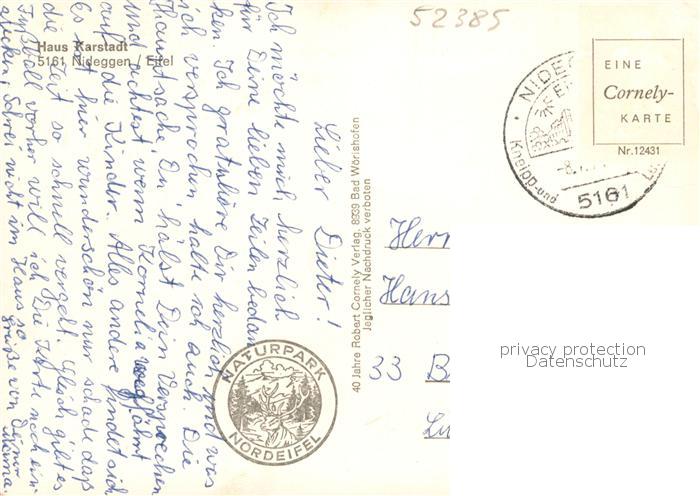 52385
Haus Karstadt
5161 Nideggen / Eifel
EINE
Cornely-
KARTE
Nr. 12431
NIDEG
Kneipp-und
5161
40 Jahre Robert Cornely Verlag, 8939 Bad Wörishofen
Jeglicher Nachdruck verboten
NATURPARK
NORDEIFEL
Lieber Dieter!
Ich möchte mich herzlich
für Deine lieben Zeilen bedan
ken. Ich gratuliere Dir herzlich und was
ich versprochen halte ich auch. Die
Hauptsache, Du hältst Dein Versprechen
und achtest wenn Kornelia wegfährt
auf die Kinder. Alles andere findet sich
Es ist hier wunderschön nur schade daß
die Zeit so schnell vergeht. Gleich gibt es
Fußball vorher will ich Die Karte noch ein
stecken, Schrei nicht im Haus so
Grüße von Deiner
Mama.
Herr
Hans
33 B
privacy protection
Datenschutz